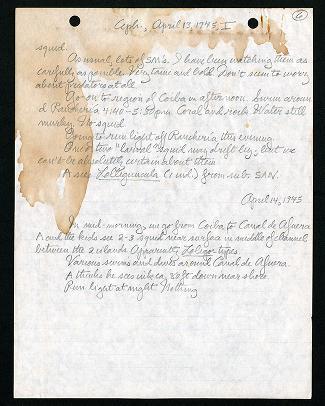 Ceph., April 13, 1975, I
6
squid.
As usual, lots of SM's. I have been watching them as
carefully as possible. Very tame and bold. Don't seem to worry
about predators at all.
Go on to region of Coiba in afternoon. Swim aroun
d Rancheria 4:40-5:30pm. Coral and rocks. Water still
murky. No squid.
Going to run light off Rancheria this evening.
One or two "larval" squid may drift by, but we
can't be absolutely certain about them.
A sees Lolliguncula (1 ind.) from sub. SAN.
April 14, 1975
In mid-morning, we go from Coiba to Canal de Afuera
A and the kids see 2-3 squid near surface in middle of channel
between the 2 islands. Apparently Loligo types.
Various swims and dives around Canal de Afuera.
A thinks he sees 80 ft down near shore
Run light at night. Nothing